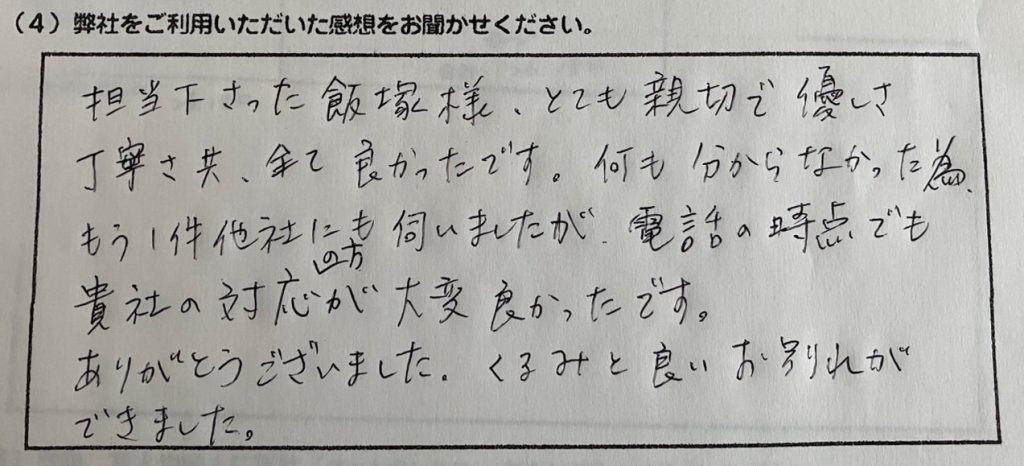 （4）弊社をご利用いただいた感想をお聞かせください。
担当下さった飯塚様、とても親切で優しさ
丁寧さ共、全て良かったです。何も分からなかった為、
もう1件他社にも伺いましたが、電話の時点でも
貴社の対応の方が大変良かったです。
ありがとうございました。くるみと良いお別れが
できました。